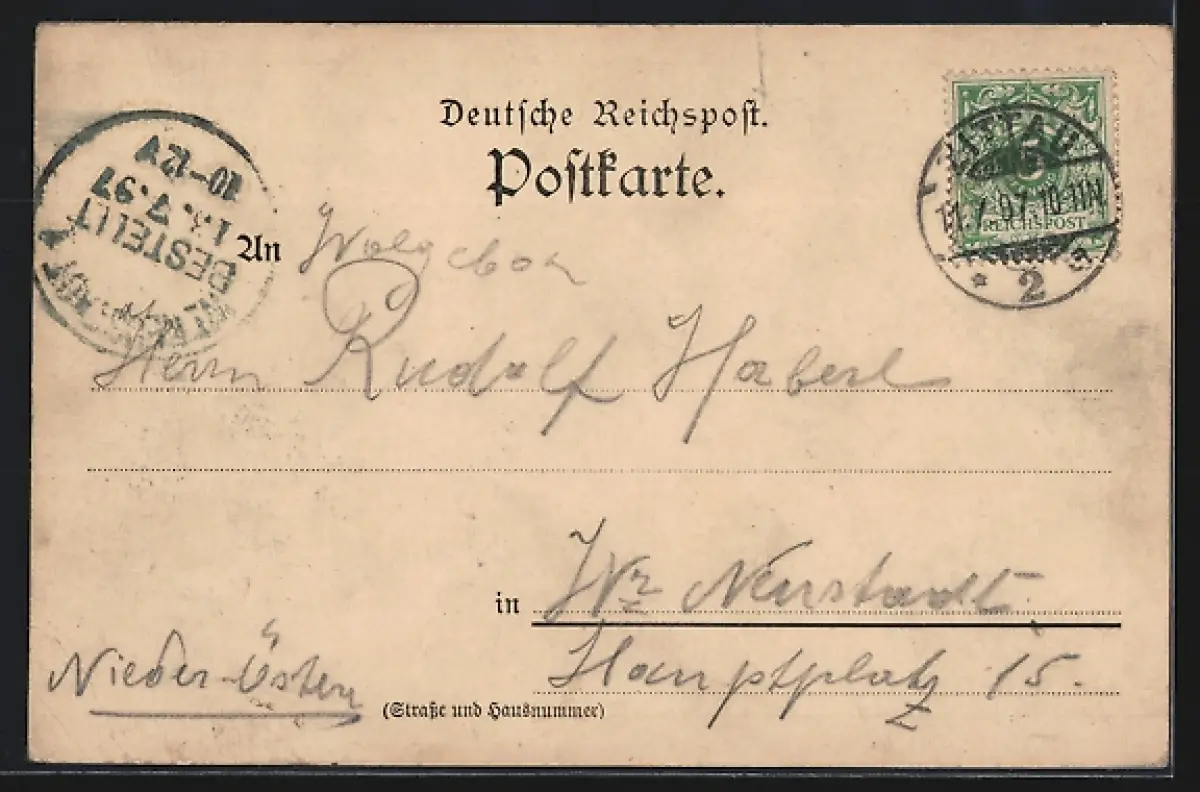 Deutsche Reichspost.
Postkarte.
ZITTAU
1.7.97.10-11N
* 2 a
5
REICHSPOST
BESTELLT
13.7.97
10-12V
An Wolgebor
Herrn Rudolf Haberl
in Wr Neustadt
Hauptplatz 15.
Nieder-Österr
(Straße und Hausnummer)